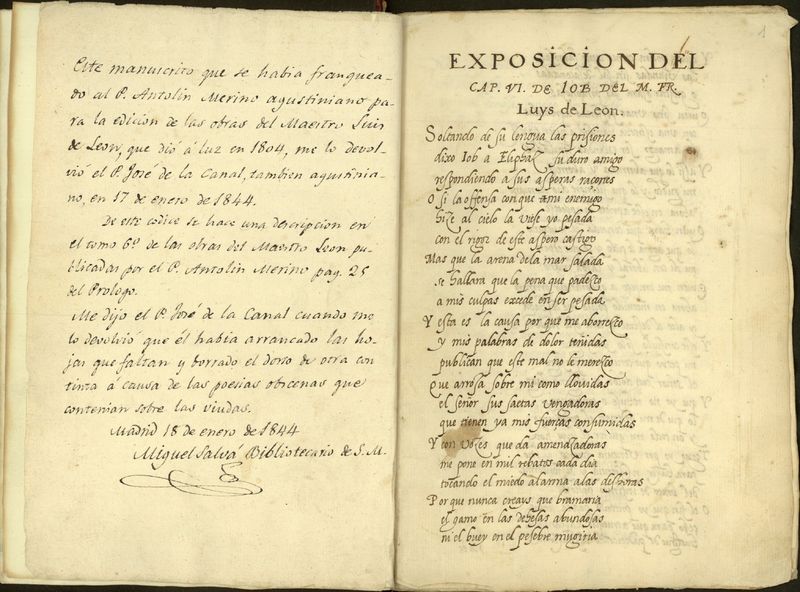 Este manuscrito que se habia franquea-
do al P. Antolin Merino agustiniano pa-
ra la edicion de las obras del Maestro Luis
de Leon, que dió á luz en 1804, me lo devol-
vió el P. José de la Canal, tambien agustinia-
no, en 17 de enero de 1844.
De este codice se hace una descripcion en
el tomo 6º de las obras del Maestro Leon pu-
blicadas por el P. Antolin Merino pag. 25
del Prologo.
Me dijo el P. José de la Canal cuando me
lo devolvió que él habia arrancado las ho-
jas que faltan y borrado el dorso de otra con
tinta á causa de las poesias obscenas que
contenian sobre las viudas.
Madrid 18 de enero de 1844
Miguel Salvá Bibliotecario de S. M.
1
EXPOSICION DEL
CAP. VI. DE IOB DEL M. FR.
Luys de Leon.
Soltando de su lengua las prisiones
dixo Iob a Eliphaz su duro amigo
respondiendo a sus asperas raçones
O si la offensa con que a mi enemigo
hize al cielo la viese yo pesada
con el rigor de este aspero castigo
Mas que la arena dela mar salada
se hallara que la pena que padezco
a mis culpas excede en ser pesada
Y esta es la causa por que me aborrezco
y mis palabras de dolor teñidas
publican que este mal no le merezco
Que arrosa sobre mi como llouidas
el señor sus saetas vengadoras
que tienen ya mis fuerças consumidas
Y con vozes que da amenazadoras
me pone en mil rebatos cada dia
tocando el miedo alarma alas deshoras
Por que nunca creays que bramaria
el gamo en las dehesas abundosas
ni el buey en el pesebre mugiria